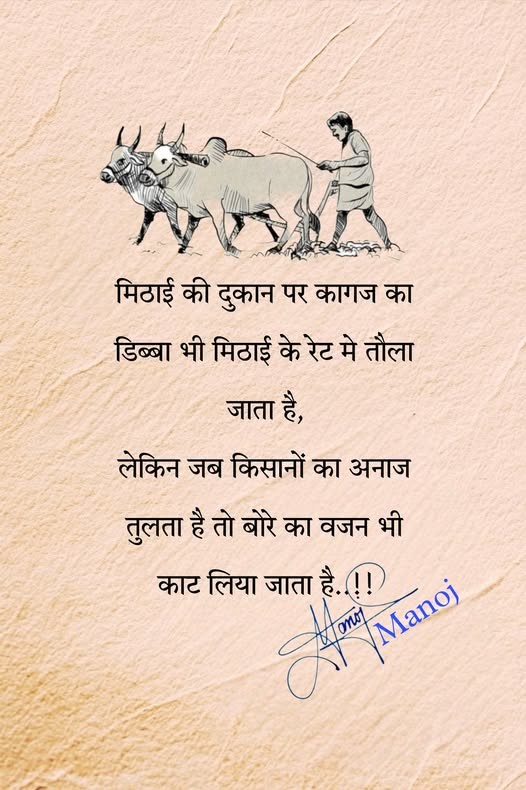 मिठाई की दुकान पर कागज का
डिब्बा भी मिठाई के रेट मे तौला
जाता है,
लेकिन जब किसानों का अनाज
तुलता है तो बोरे का वजन भी
काट लिया जाता है..!!
Manoj
Manoj